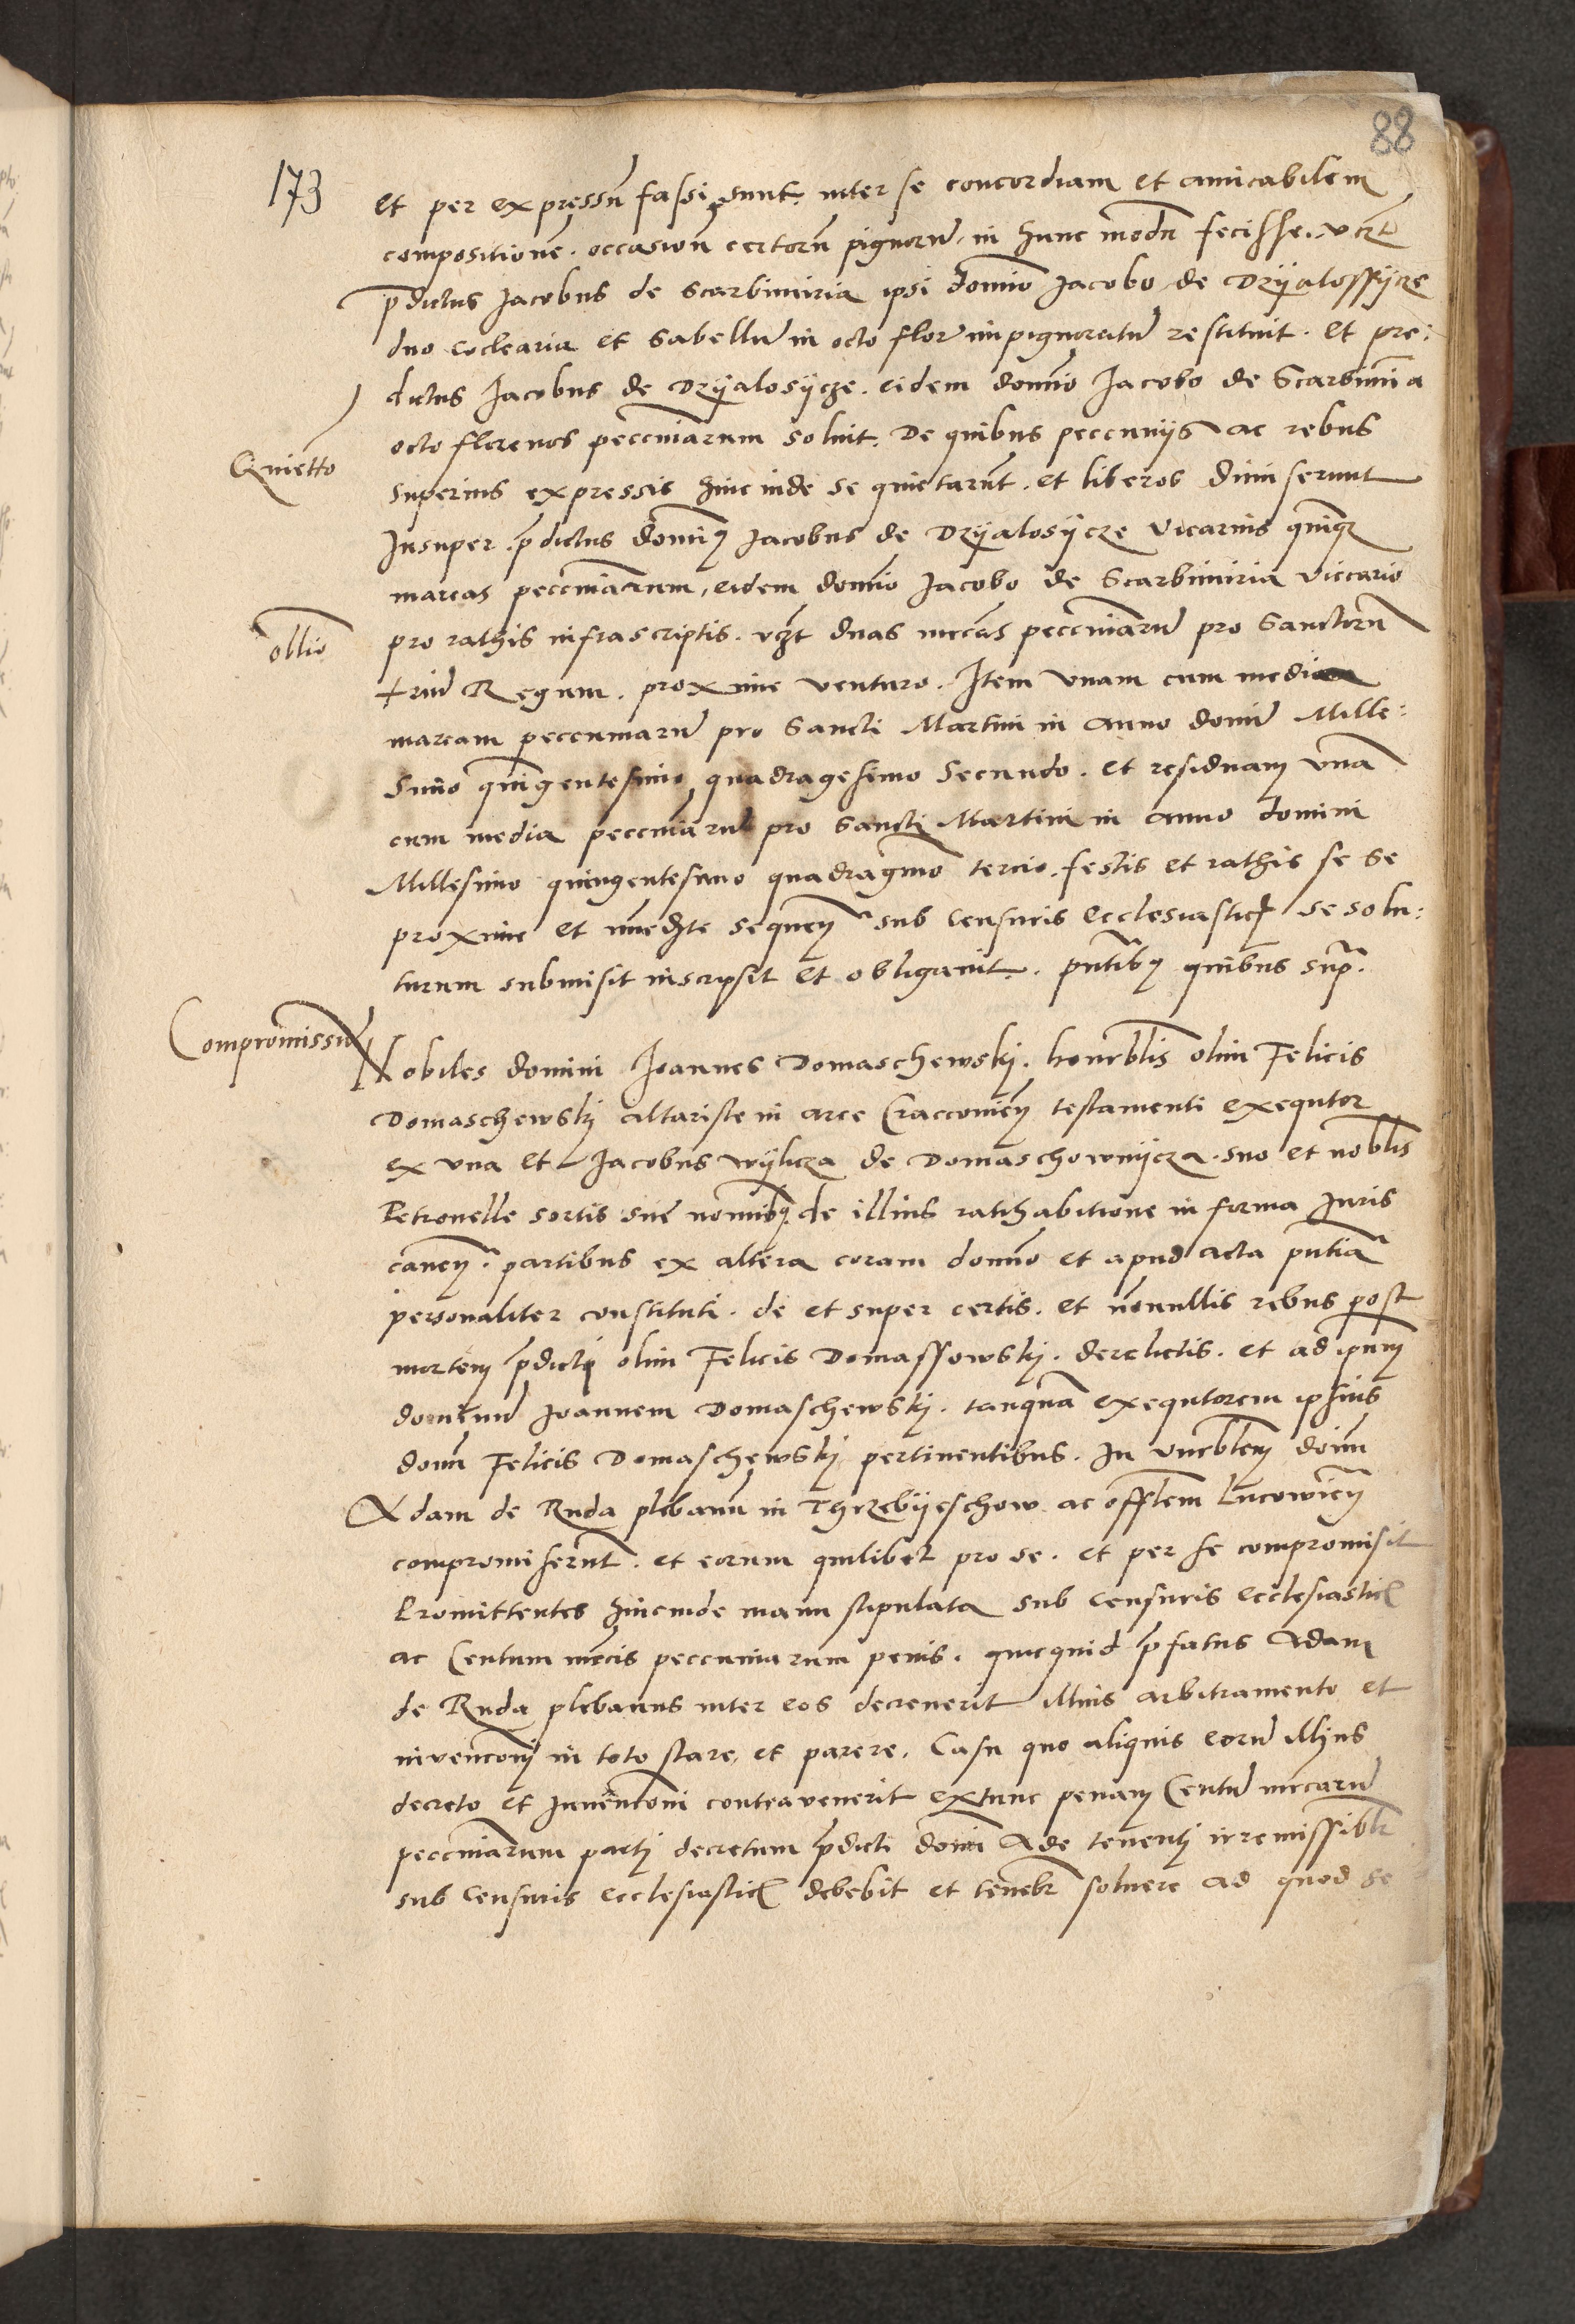 88
173
et per expressum fassi sunt. inter se concordiam et amicabilem
compositionē. occasionē certorū pignorū, in hunc modū fecisse. vczt
p̄dictus Jacobus de Scarbimiria ipsi domīo Jacobo de Dzyalossÿcze
duo coclearia et Sabellū in octo flor impignoratū restituit. et pre:
dictus Jacobus de Dzÿalosÿcze. eidem domīo Jacobo de Scarbimia
octo florenos peccuniarum soluit. De quibus peccunijs ac rebus
Quietto
superius expressis hinc inde se quietarūt. et liberos dimiserunt
Insuper. p̄dictus domīꝰ Jacobus de Dzÿalosÿcze vicarius quīqꝫ
marcas peccuniarum, eidem domīo Jacobo de Scarbimiria viccario
obllio
pro rathis infrascriptis. vczt duas mrcas peccuniarū pro Sanctorū
triū Regum. proxime venturo. Item vnam cum media
marcam peccuniarū pro Sancti Martini in anno domī Mille:
simo quīgentesimo quadragesimo Secundo. et residuam vnā
cum media peccuniarū pro Sancti Martini in anno domini
Millesimo quingentesimo quadragmo tercio. festis et rathis se se
proxime et īmedte sequeñ sub censuris Ecclesiasticꝭ se solu:
turum submisit inscripsit et obligauit. pn̄tibꝰ quibus supᵃ.
Compromissū
Nobiles domini Joannes Domaschewskj. honorblis olim Felicis
Domaschewskj altariste in arce Cracouieñ testamenti exequtor
ex vna et Jacobus wÿlicza de Domaschownÿcza. suo et noblis
Petronelle sortis sue nomibꝰ de illius ratihabitione in forma Juris
caueñ. partibus ex altera coram domīo et apud acta pn̄tia
personaliter constituti. de et super certis. et nonnullis rebus post
mortem p̄dicti olim Felicis Domassowskj. derelictis. et ad ipsum
dominū Joannem Domaschewskj. tanquā exequtorem ipsius
domī Felicis Domaschewskj pertinentibus. In venerblem domī
Adam de Ruda plebanū in Thrzebÿeschow ac offlem Lucowieñ
compromiserūt. et eorum quilibet pro se. et per se compromisit
Promittentes hincinde manu stipulata sub censuris Ecclesiasticꝭ
ac Centum mrcis peccuniarum penis. quicquid p̄fatus Adam
de Ruda plebanus inter eos decreuerit illius arbitramento et
inuenconi in toto stare, et parere. Casu quo aliquis eorū illius
decreto et Inuenconi contrauenerit extunc penam Centū mrcarū
peccuniarum parti decretum p̄dicti domī Ade tenenti irremissiblr
sub Censuris Ecclesiasticꝭ debebit et tenebr soluere ad quod se